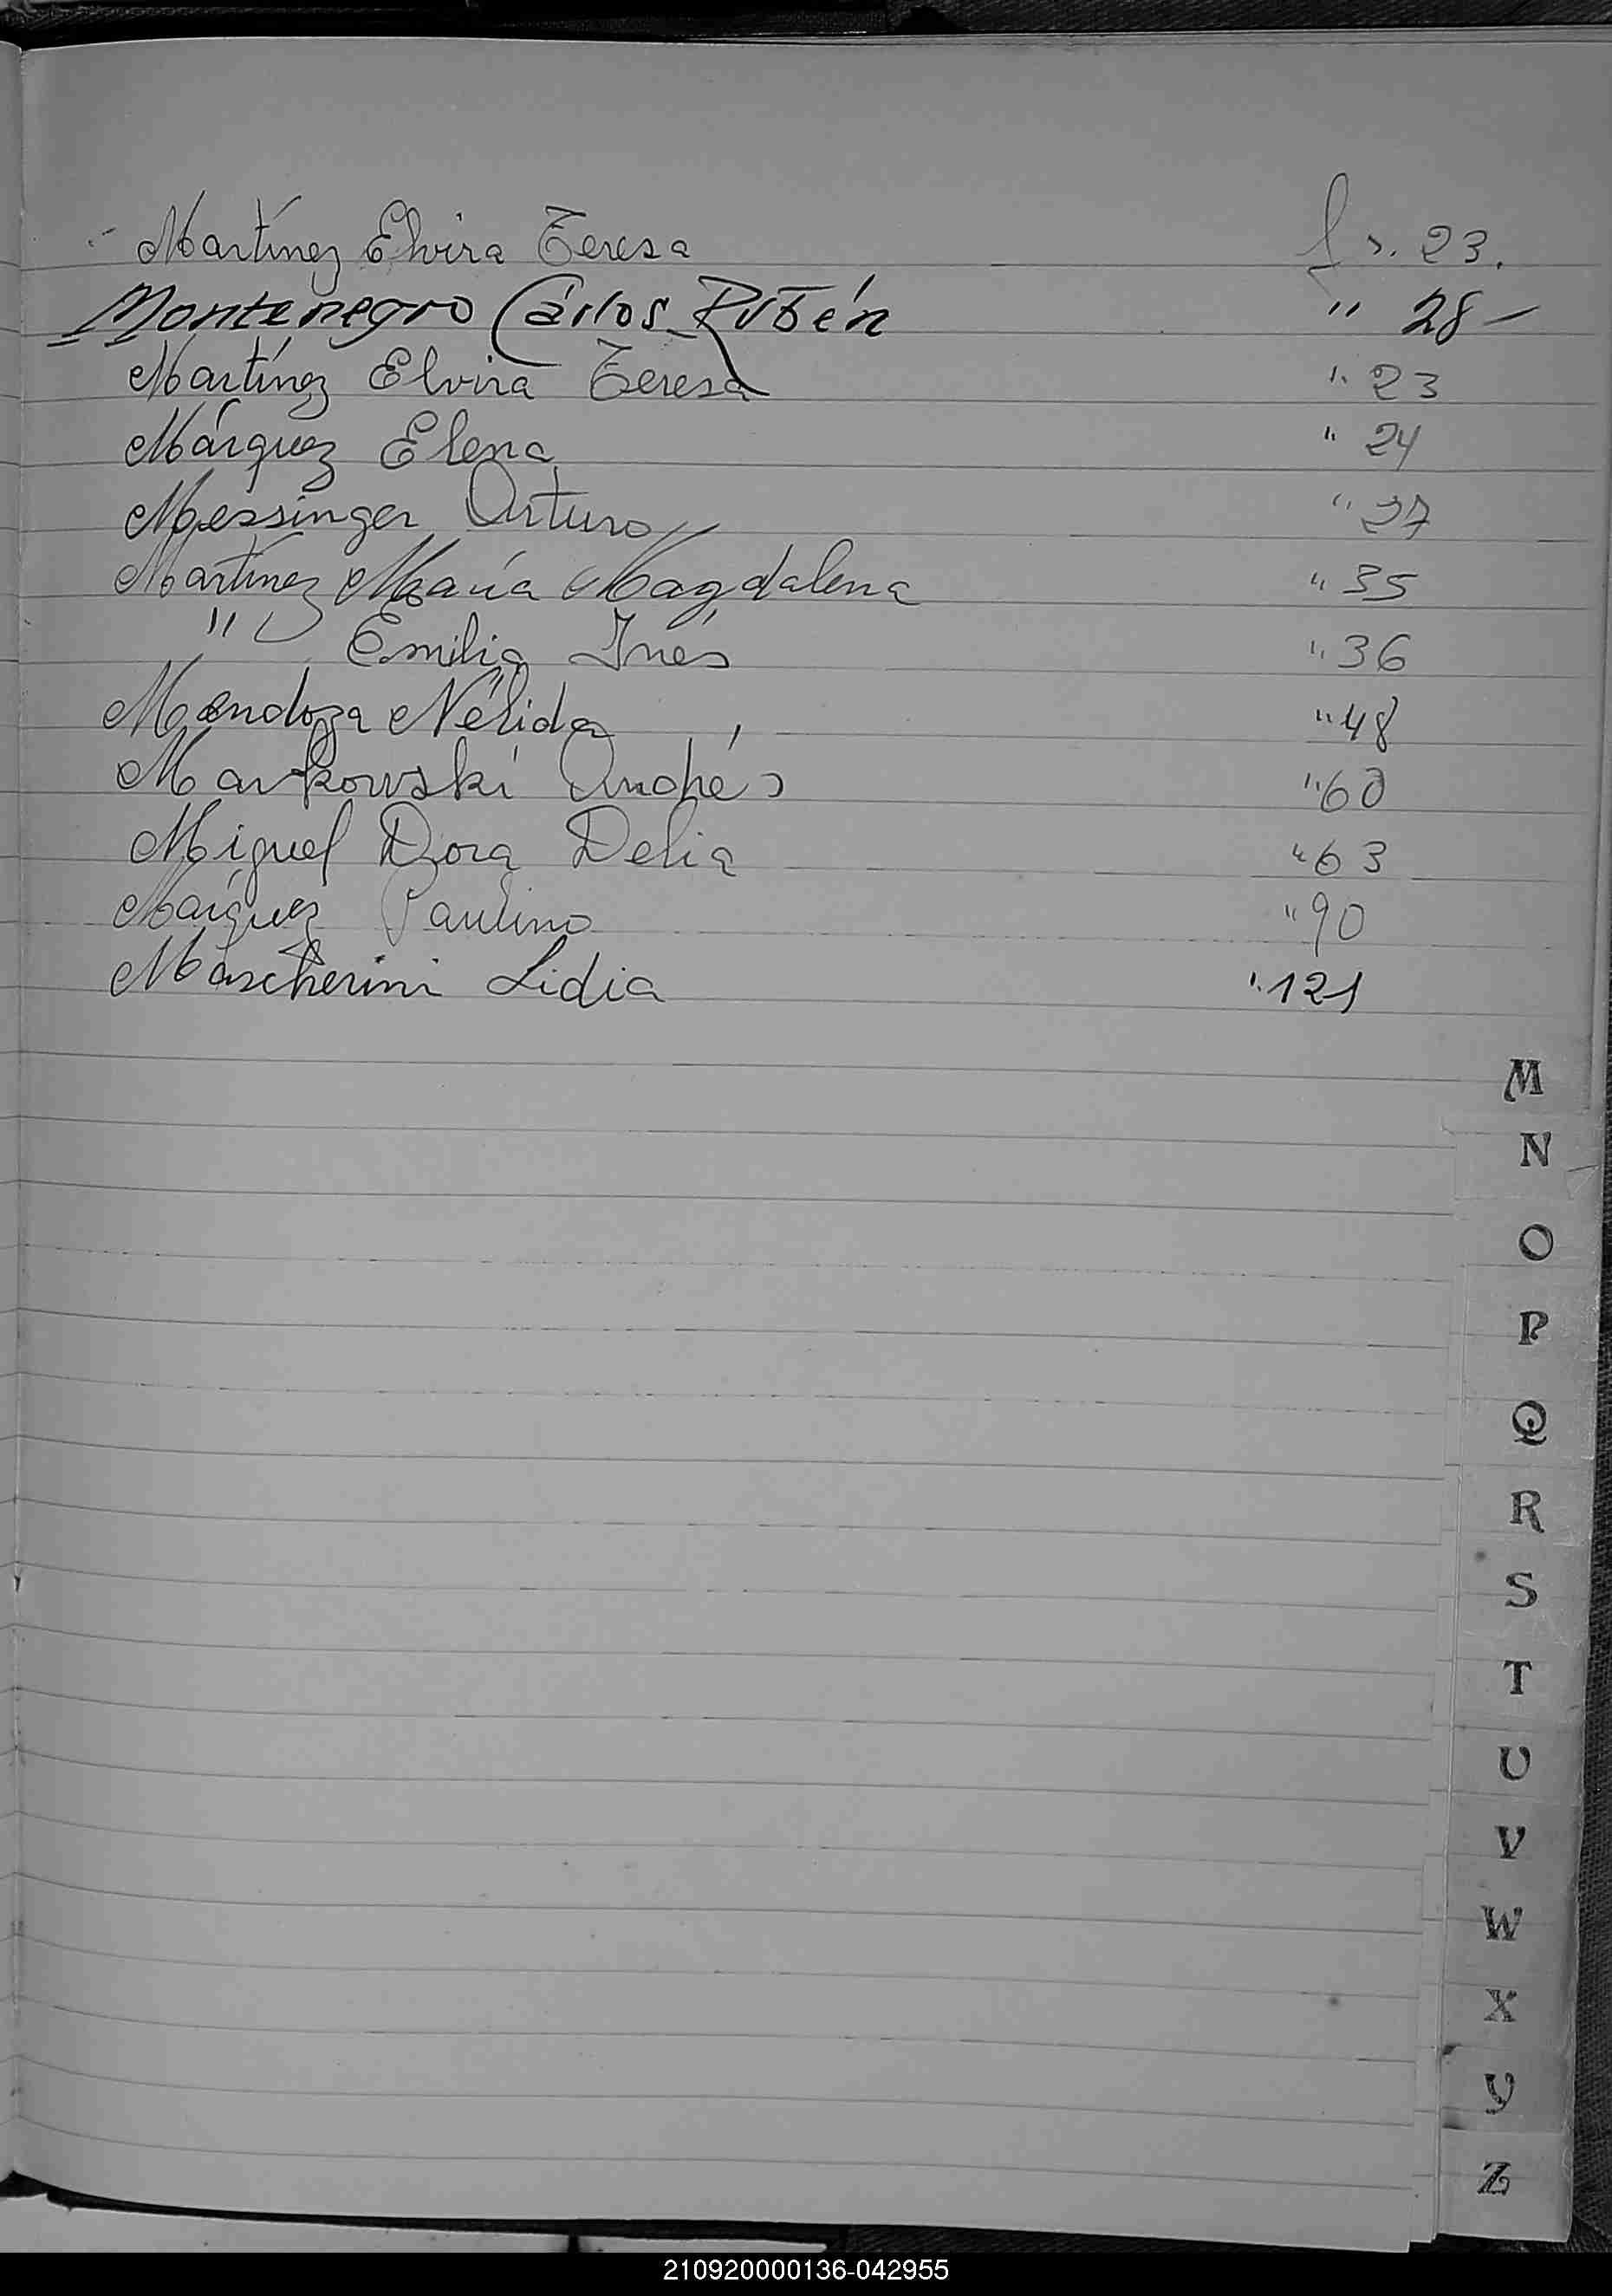 Martínez Elvira Teresa fs. 23.
Montenegro Cárlos Rubén " 28-
Martínez Elvira Teresa " 23
Márquez Elena " 24
Messinger Arturo " 27
Martínez María Magdalena " 35
" Emilia Inés " 36
Mendoza Nélida " 48
Markowski Andrés " 60
Miguel Dora Delia " 63
Márquez Paulino " 90
Mascherini Lidia " 121
M
N
O
P
Q
R
S
T
U
V
W
X
Y
Z
210920000136-042955